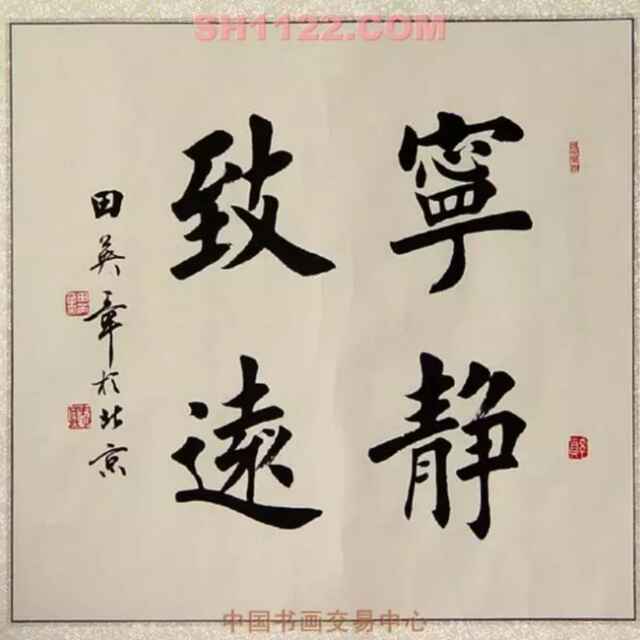 SH1122.COM
寧靜
致遠
田英章於北京
中国书画交易中心